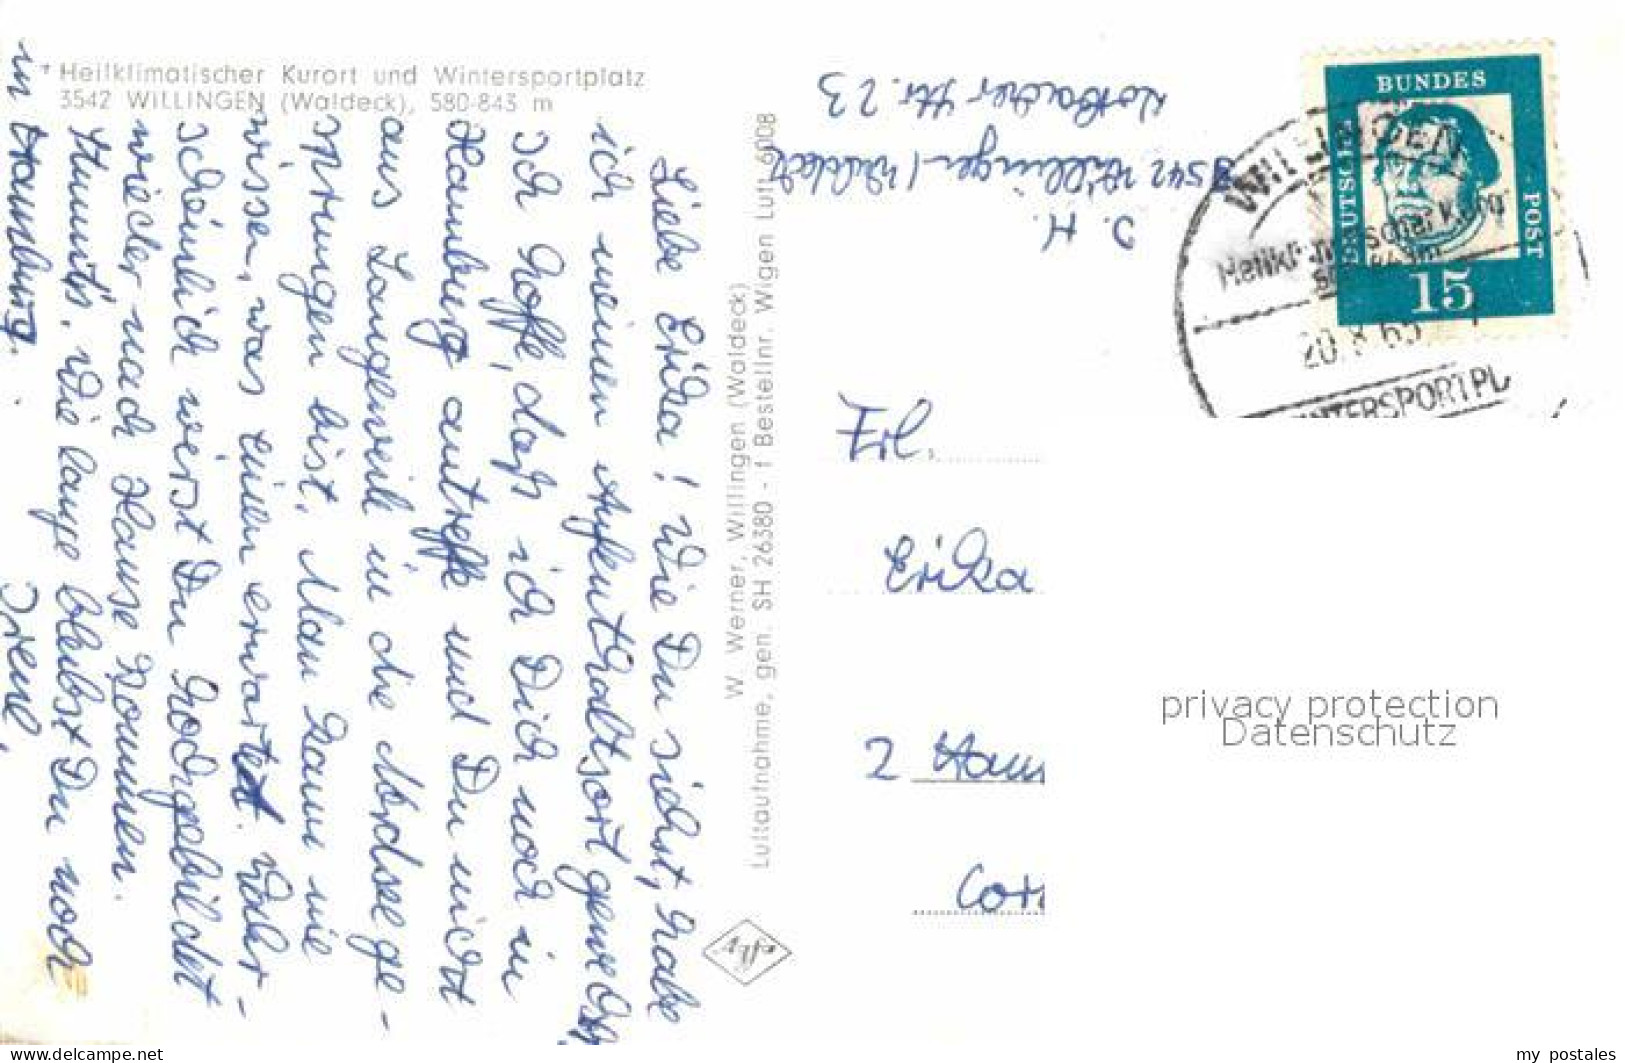 Heilklimatischer Kurort und Wintersportplatz
3542 WILLINGEN (Waldeck), 580-843 m
Liebe Erika! Wie Du siehst, habe
ich meinen Aufenthaltsort gewechselt.
Ich hoffe, daß ich Dich noch in
Hamburg antreffe und Du nicht
aus Langeweile in die Nordsee ge-
sprungen bist. Man kann nie
wissen, was einen erwartet. Wahr-
scheinlich wirst Du hochgebildet
wieder nach Hause kommen.
Stimmt's. Wie lange bleibst Du noch
in Hamburg.
Irene.
W. Werner, Willingen (Waldeck)
Luftaufnahme, gen. SH 26380 - f Bestellnr. Wigen Luft 6008
Agfa
I. H.
3542 Willingen / Waldeck
Str. 23
BUNDES
DEUTSCHE
POST
15
WILLINGEN
20.8.65
WINTERSPORTPL
Frl.
Erika
2 Ham
Cor
privacy protection
Datenschutz
www.delcampe.net
my_postales